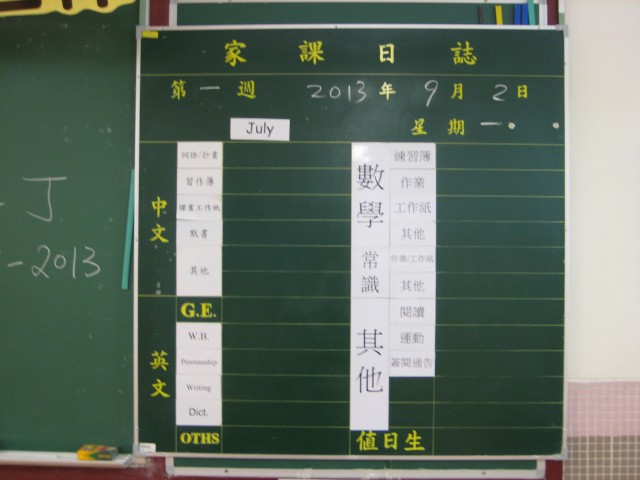 家課日誌
第一週 2013年9月2日
July 星期一
中文
詞語/抄書
習作簿
課業工作紙
默書
其他
G.E.
英文
W.B.
Penmanship
Writing
Dict.
OTHS
數學
練習簿
作業
工作紙
其他
常識
作業/工作紙
其他
其他
閱讀
運動
簽閱通告
值日生
J
-2013